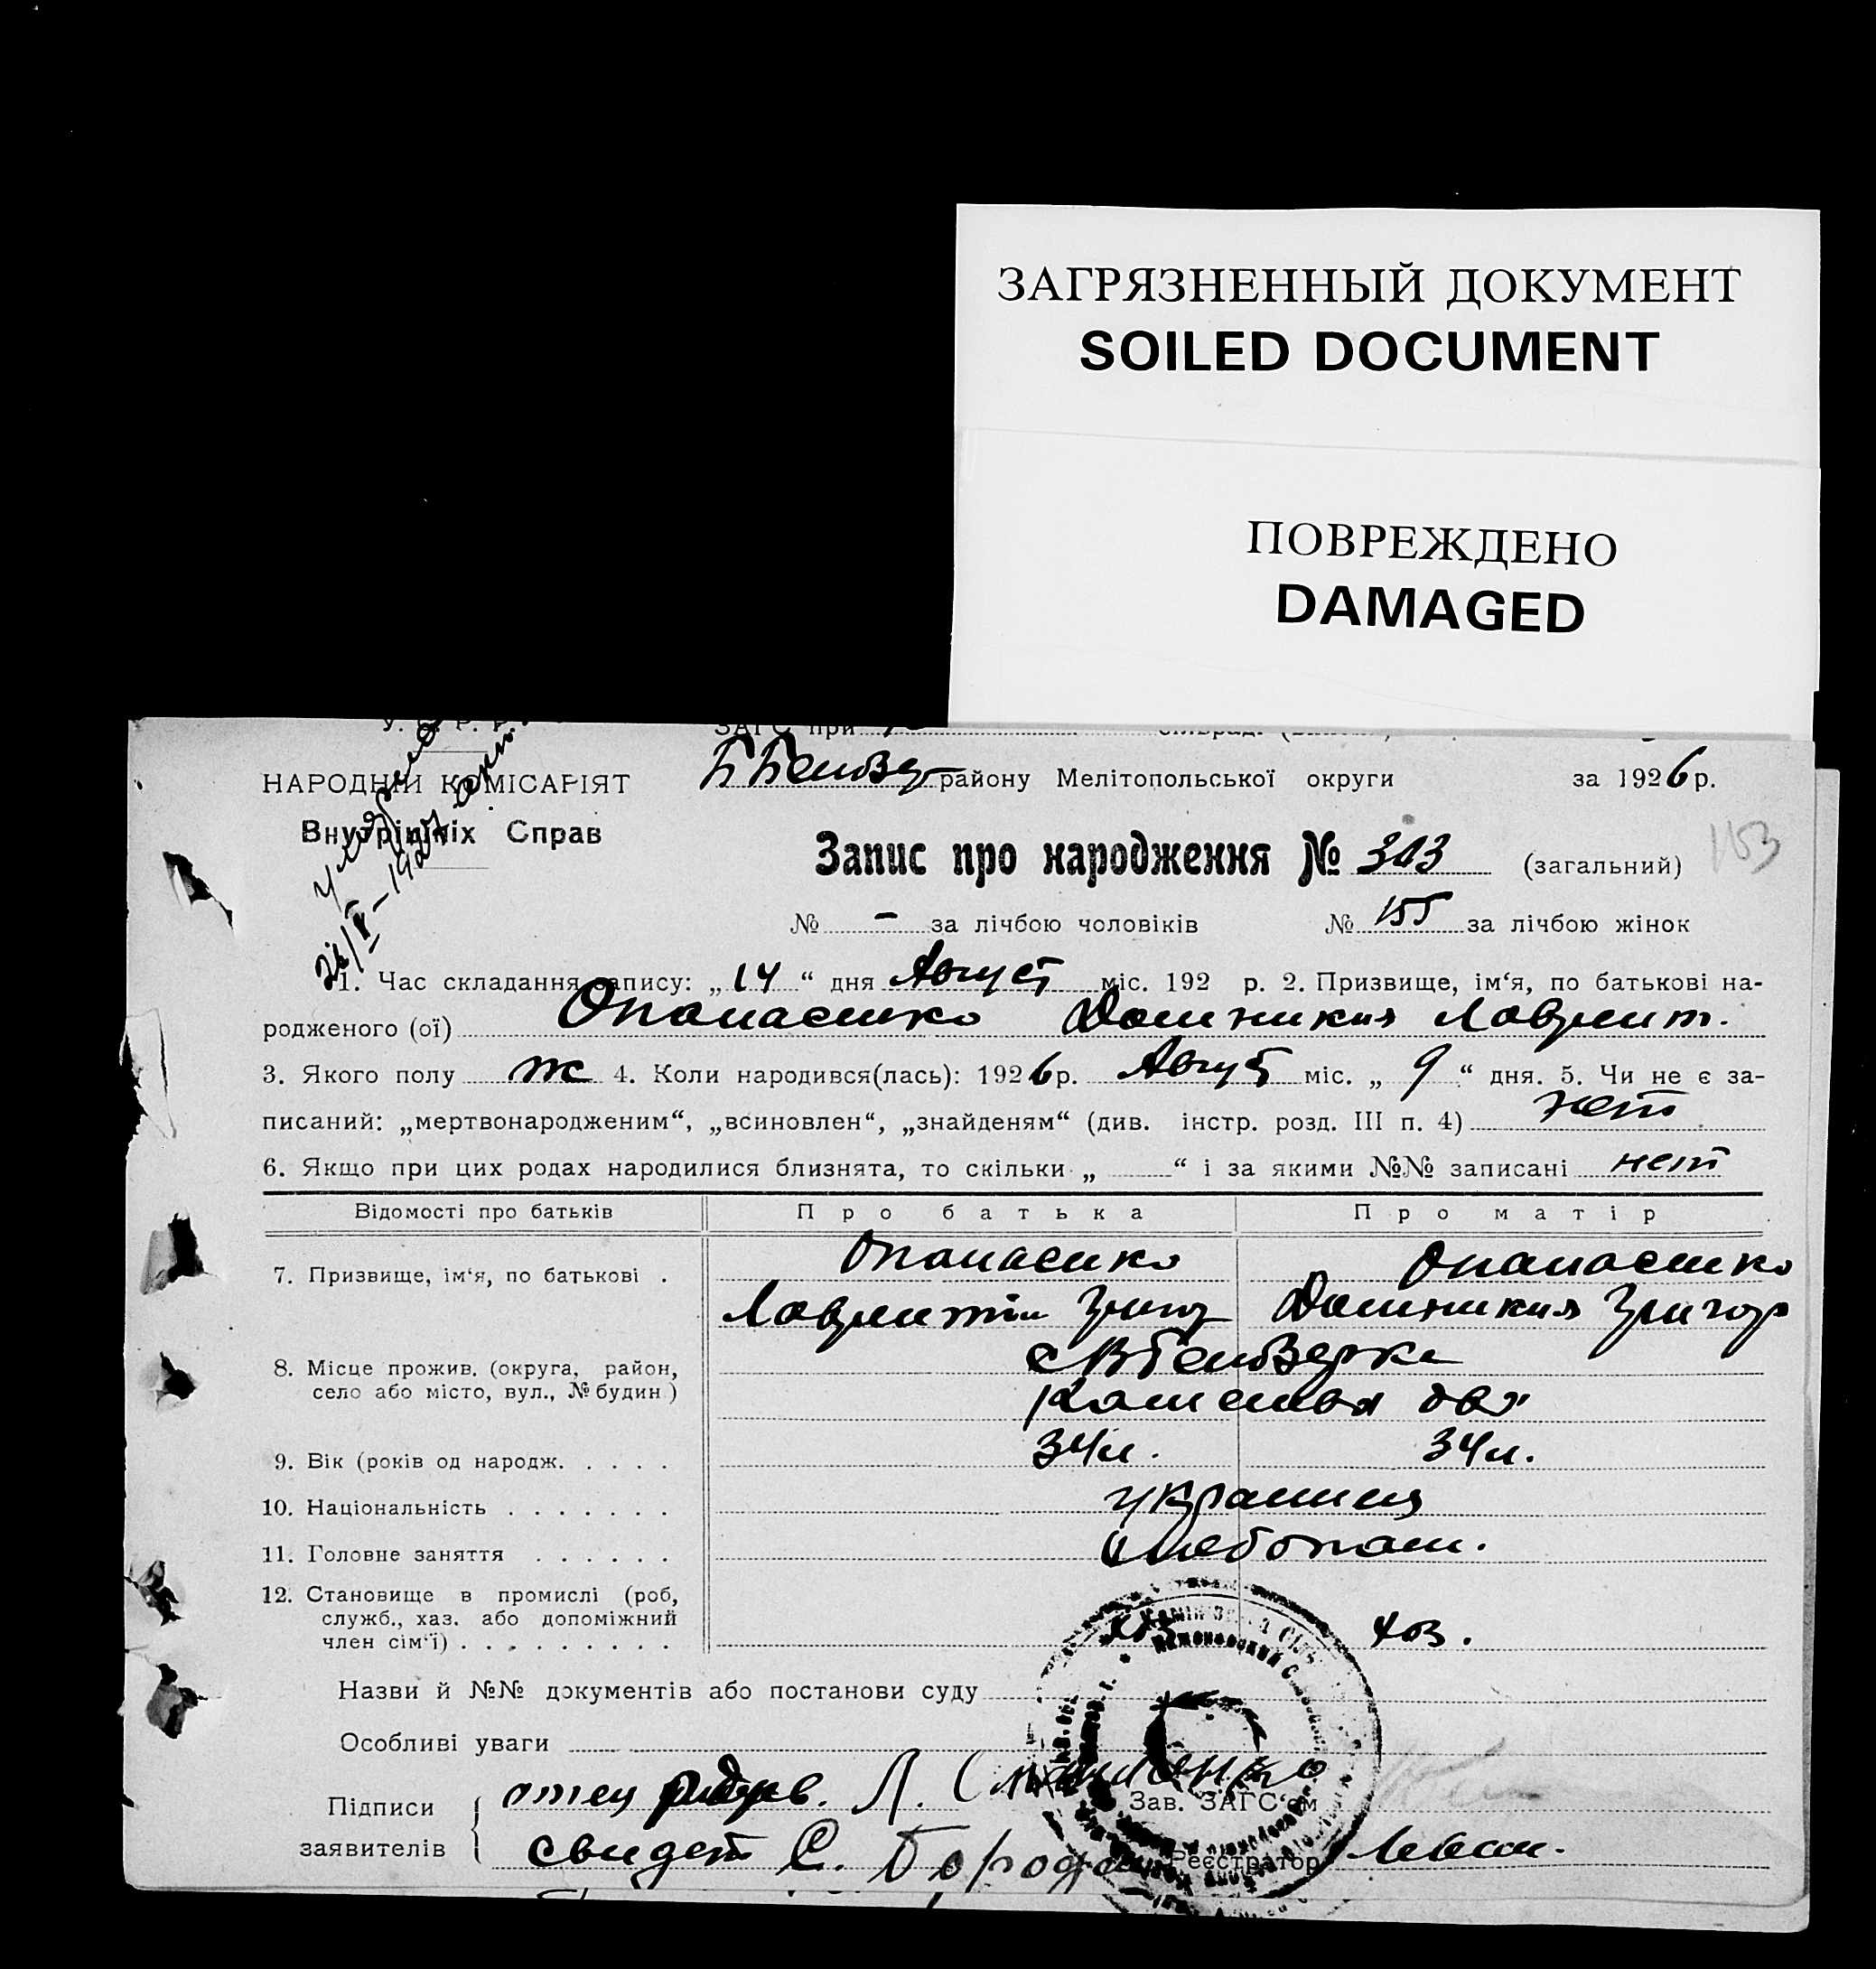 ЗАГРЯЗНЕННЫЙ ДОКУМЕНТ
SOILED DOCUMENT
ПОВРЕЖДЕНО
DAMAGED
У. С. Р. Р.
ЗАГС при
НАРОДНІЙ КОМІСАРІЯТ
району Мелітопольської округи за 1926 р.
Внутрішніх Справ
Запис про народження № 303 (загальний)
153
№ – за лічбою чоловіків № 155 за лічбою жінок
1. Час складання запису: „ 14 “ дня Август міс. 192 р. 2. Призвище, ім‘я, по батькові на-
родженого (ої) Опанасенко Домникия Лаврент.
3. Якого полу ж 4. Коли народився(лась): 1926 р. Август міс. „ 9 “ дня. 5. Чи не є за-
писаний: „мертвонародженим“, „всиновлен“, „знайденям“ (див. інстр. розд. III п. 4) нет
6. Якщо при цих родах народилися близнята, то скільки „ “ і за якими №№ записані нет
Відомості про батьків Про батька Про матір
7. Призвище, ім‘я, по батькові . Опанасенко Опанасенко
Лаврентий Григор Домникия Григор
8. Місце прожив. (округа, район,
село або місто, вул., № будин.)
9. Вік (років од народж. . . . . 34 л. 34 л.
10. Національність . . . . . . . украинцы
11. Головне заняття . . . . . . хлебопаш.
12. Становище в промислі (роб,
служб., хаз. або допоміжний
член сім‘ї) . . . . . . . . . хоз.
Назви й №№ документів або постанови суду
Особливі уваги
Підписи отец Л.
Зав. ЗАГС‘ом
заявителів свидет С. Реєстратор